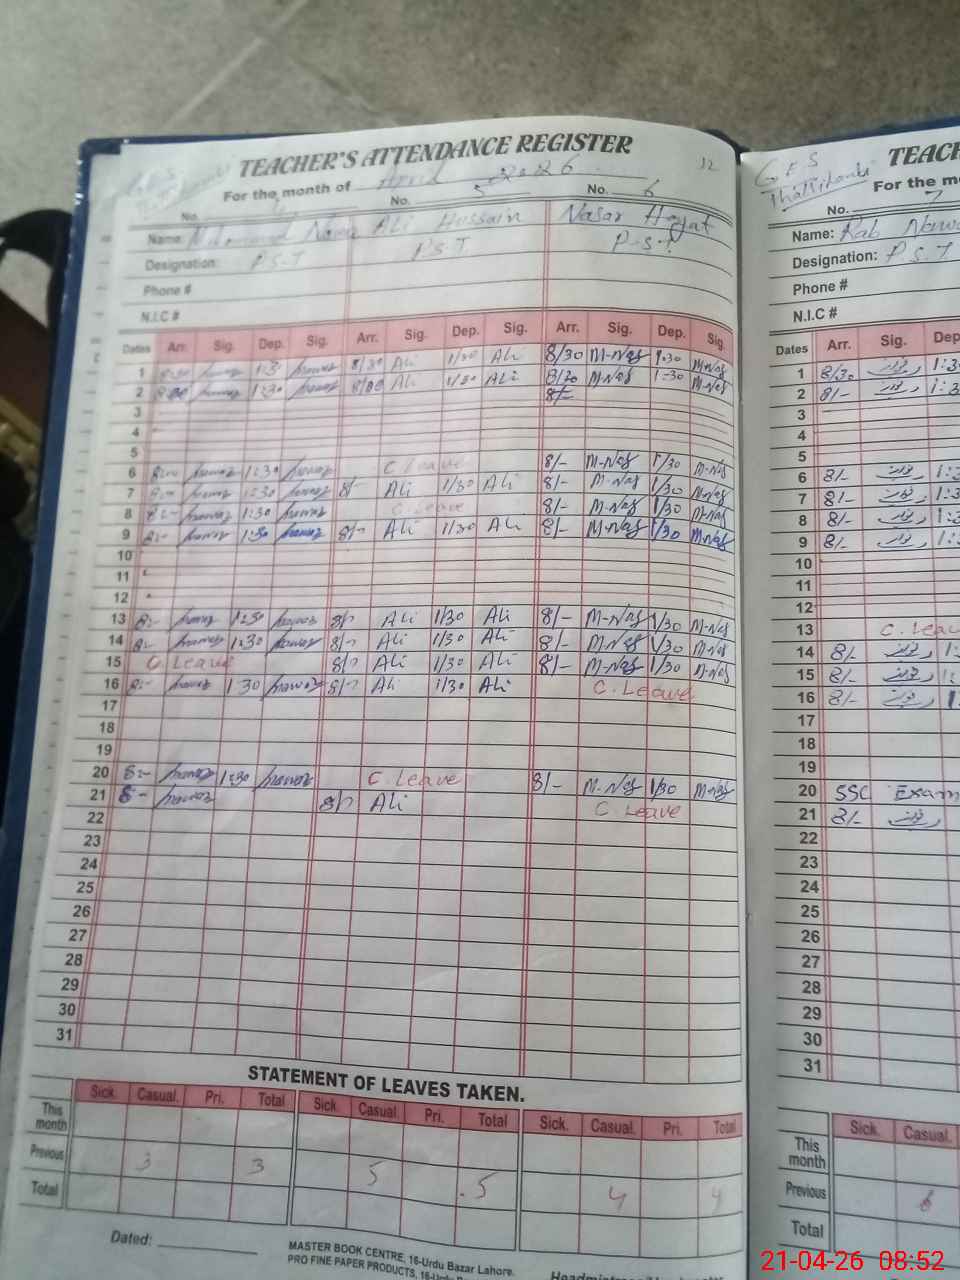 TEACHER'S ATTENDANCE REGISTER
For the month of April 2026 12
No. 4 No. 5 No. 6
Name: Mohammad Nawaz Ali Hussain Nasar Hayat
Designation: P.S.T P.S.T P.S.T
Phone #
N.I.C #
Dates Arr. Sig. Dep. Sig. Arr. Sig. Dep. Sig. Arr. Sig. Dep. Sig.
1 8:30 1:30 8/30 Ali 1/30 Ali 8/30 M-Nas 1:30 M-Nas
2 8:00 1:30 8/00 Ali 1/30 Ali 8/30 M-Nas 1:30 M-Nas
3 8/-
4
5
6 8:- 1:30 C. Leave 8/- M-Nas 1/30 M-Nas
7 8:- 1:30 8/- Ali 1/30 Ali 8/- M-Nas 1/30 M-Nas
8 8:- 1:30 C. Leave 8/- M-Nas 1/30 M-Nas
9 8:- 1:30 8/- Ali 1/30 Ali 8/- M-Nas 1/30 M-Nas
10
11
12
13 8:- 1:30 8/- Ali 1/30 Ali 8/- M-Nas 1/30 M-Nas
14 8:- 1:30 8/- Ali 1/30 Ali 8/- M-Nas 1/30 M-Nas
15 C. Leave 8/- Ali 1/30 Ali 8/- M-Nas 1/30 M-Nas
16 8:- 1:30 8/- Ali 1/30 Ali C. Leave
17
18
19
20 8:- 1:30 C. Leave 8/- M-Nas 1/30 M-Nas
21 8:- 8/- Ali C. Leave
22
23
24
25
26
27
28
29
30
31
STATEMENT OF LEAVES TAKEN.
Sick. Casual. Pri. Total Sick. Casual. Pri. Total Sick. Casual. Pri. Total
This month
Previous 3 3 5 5 4 4
Total
Dated:
MASTER BOOK CENTRE, 16-Urdu Bazar Lahore.
PRO FINE PAPER PRODUCTS, 16-Urdu
GES
Thatti
TEACH
For the mo
No. 7
Name: Rab Nawa
Designation: P.S.T
Phone #
N.I.C #
Dates Arr. Sig. Dep
1 8/30 1:3
2 8/- 1:3
3
4
5
6 8/- 1:3
7 8/- 1:3
8 8/- 1:3
9 8/- 1:
10
11
12
13 C. Leav
14 8/- 1:
15 8/- 1:
16 8/- 1
17
18
19
20 SSC Exam
21 8/-
22
23
24
25
26
27
28
29
30
31
Sick. Casual.
This month
Previous
Total
21-04-26 08:52